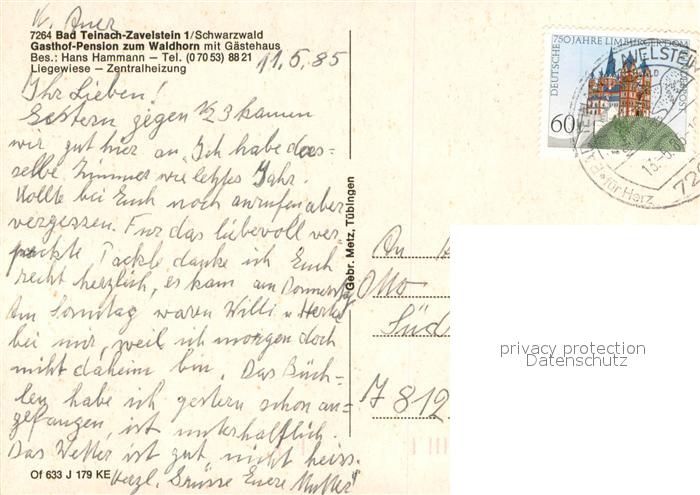 K. Auer
7264 Bad Teinach-Zavelstein 1/Schwarzwald
Gasthof-Pension zum Waldhorn mit Gästehaus
Bes.: Hans Hammann – Tel. (0 70 53) 88 21
Liegewiese – Zentralheizung
11.5.85
Ihr Lieben!
Gestern gegen ½3 kamen
wir gut hier an. Ich habe das-
selbe Zimmer wie letztes Jahr.
Wollte bei Euch noch anrufen aber
vergessen. Für das liebevoll ver
packte Päckle danke ich Euch
recht herzlich, es kam am Donnerstag
Am Sonntag waren Willi u. Herta
bei mir, weil ich morgen doch
nicht daheim bin. Das Büch-
len habe ich gestern schon an-
gefangen, ist unterhaltlich.
Das Wetter ist gut, nicht heiss.
Herzl. Grüsse Euere Mutter
Of 633 J 179 KE
Gebr. Metz, Tübingen
750 JAHRE LIMBURGER DOM
DEUTSCHE BUNDESPOST
60
VELSTEIN
für Herz
An
Otto
Süd
7812
privacy protection
Datenschutz